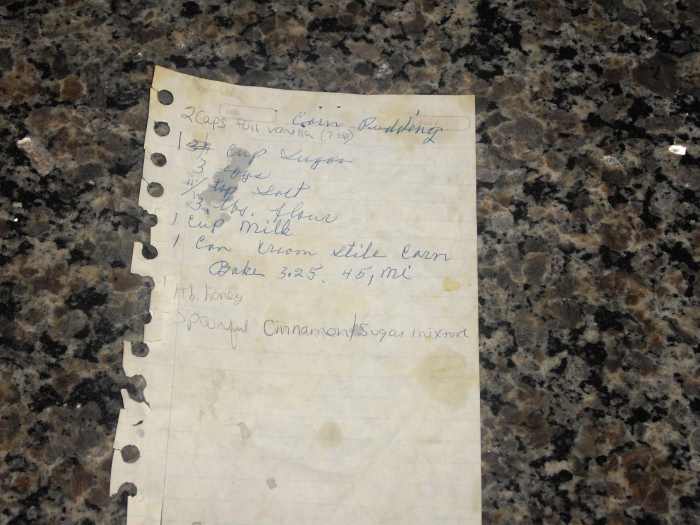 Corn Pudding
2 Caps full vanilla (7 tsp)
1 cup Sugar
3 eggs
tsp Salt
3. tbs. flour
1 Cup Milk
1 Can Kream Stile Corn
Bake 3.25. 45, mi
1 tb. honey
Spoonful Cinnamon/Sugar mixture